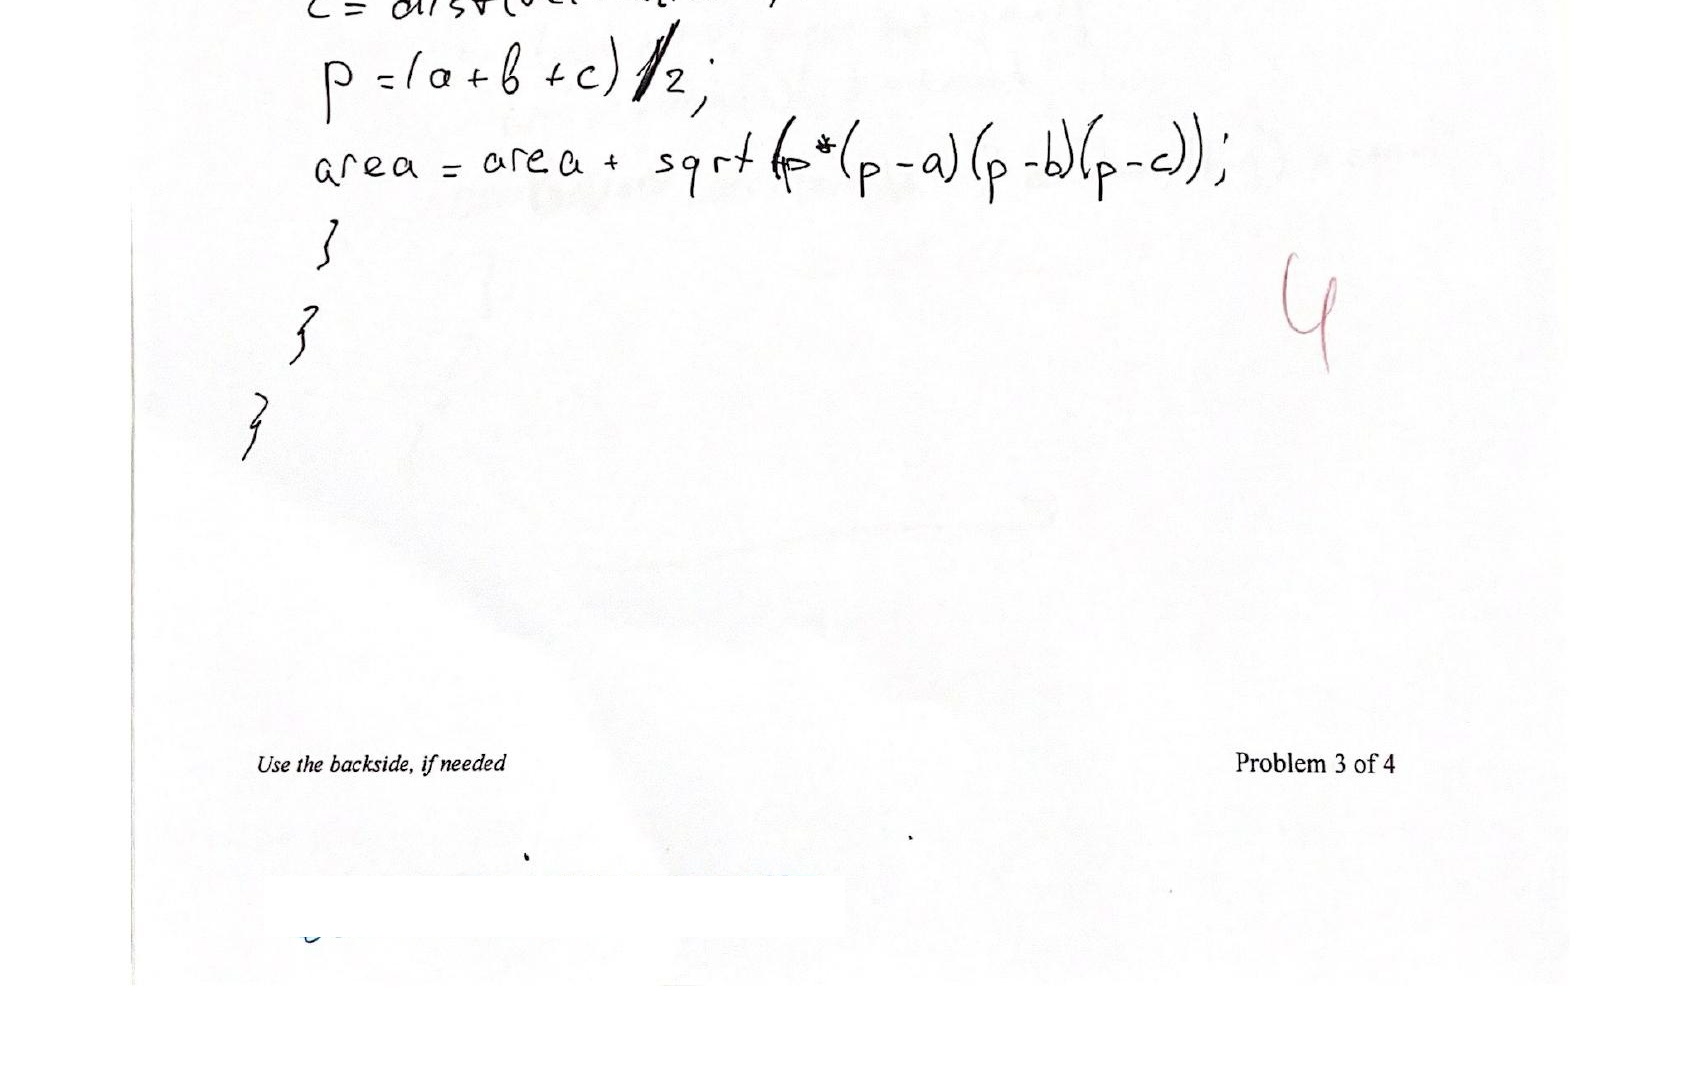 p = (a + b + c) / 2;
area = area + sqrt (p*(p-a)(p-b)(p-c));
}
}
}
4
Use the backside, if needed
Problem 3 of 4